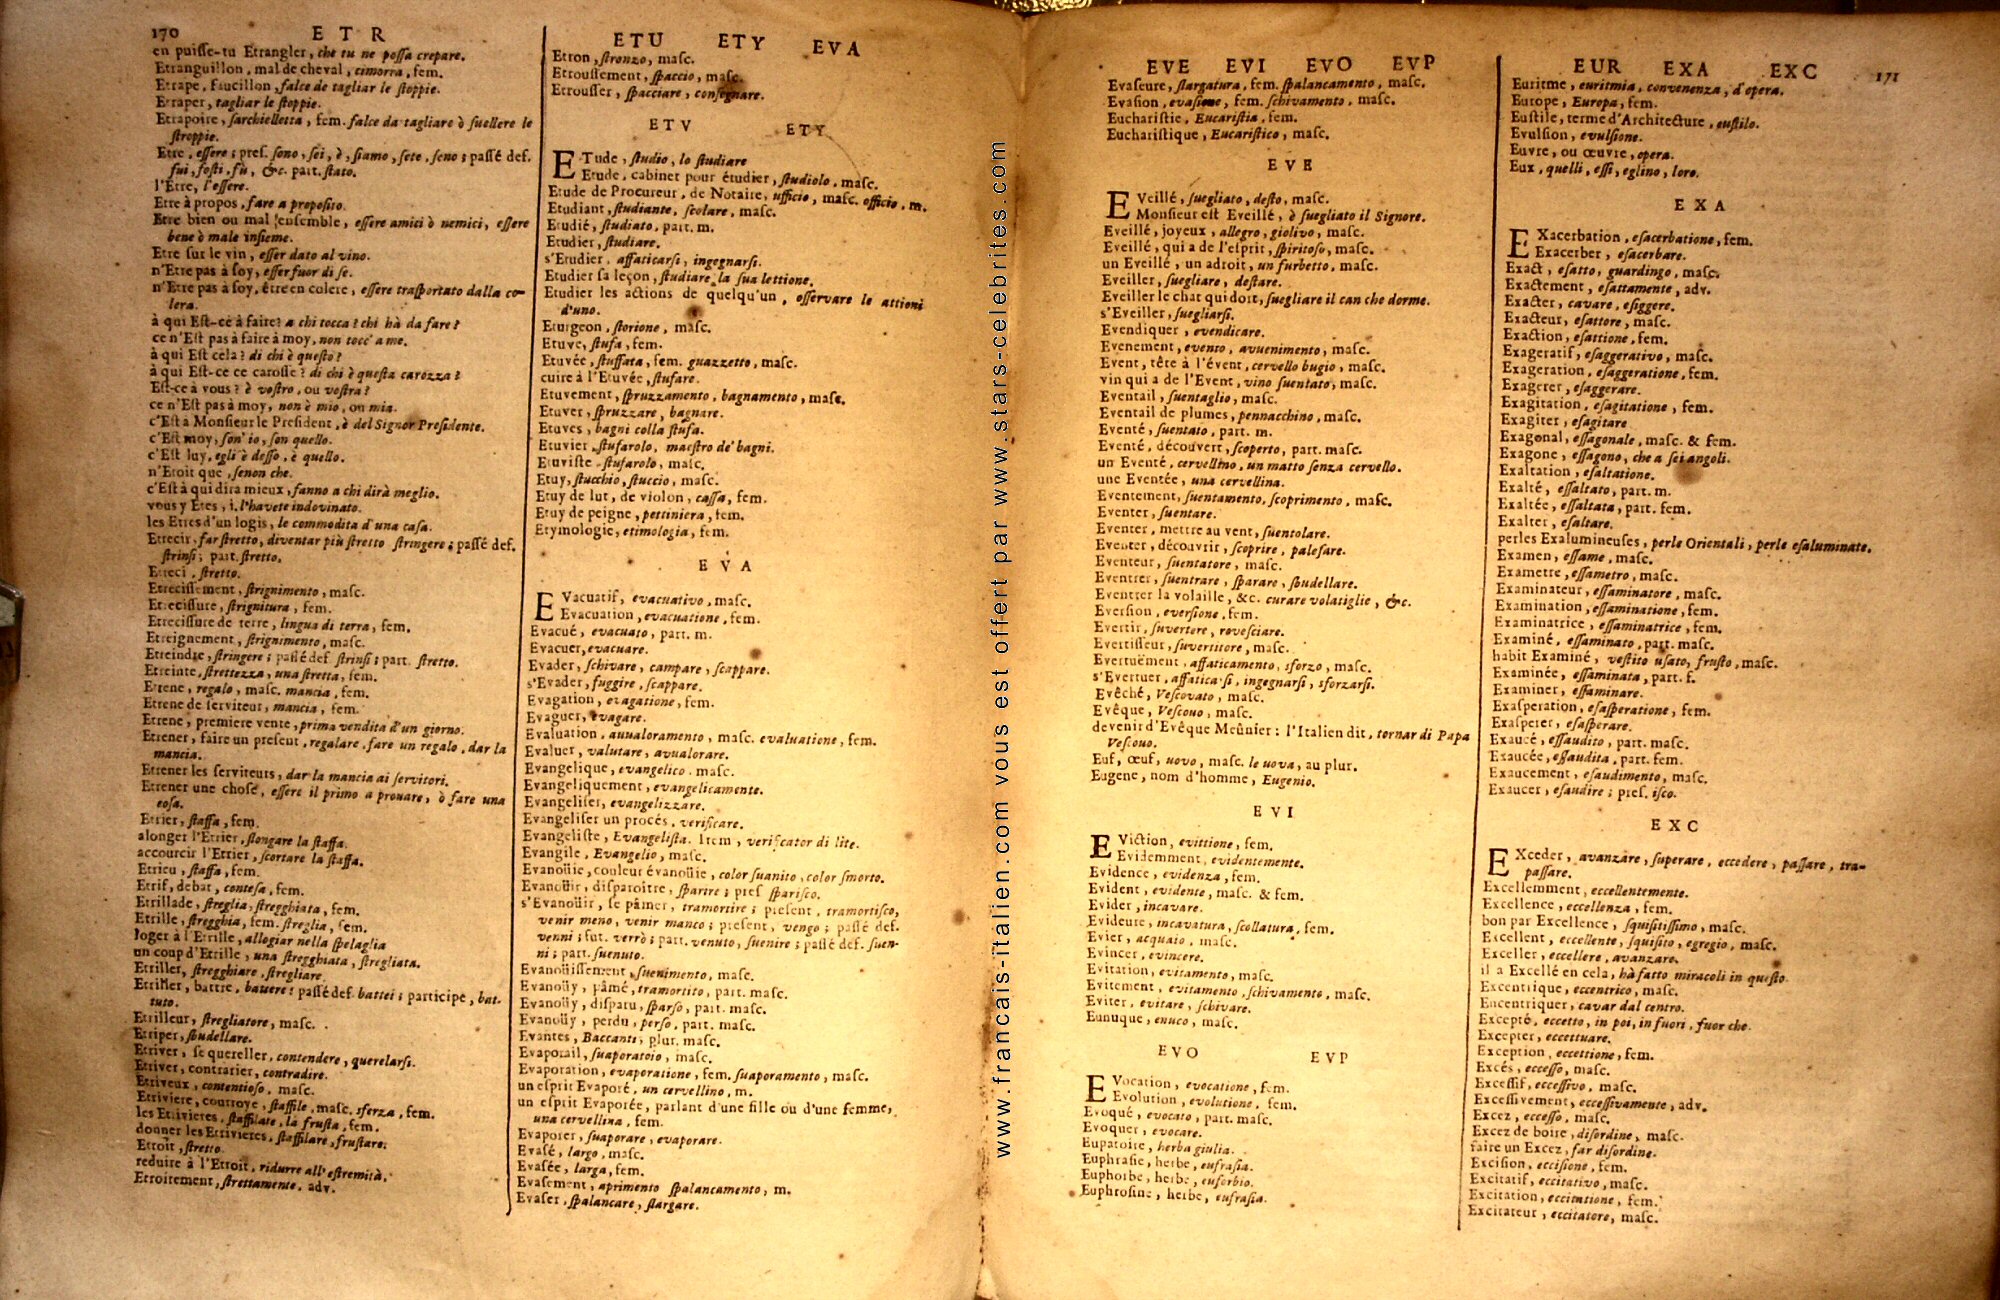 170 ETR
en puiſſe-tu Etrangler, che tu ne poſſa crepare.
Etranguillon, mal de cheval, cimorra, fem.
Etrape, faucillon, falce de tagliar le ſtoppie.
Etraper, tagliar le ſtoppie.
Etrapoire, ſarchielletta, fem. falce da tagliare ò ſuellere le
ſtroppie.
Etre, eſſere; preſ. ſono, ſei, è, ſiamo, ſete, ſono; paſſé def.
fui, foſti, fù, &c. part. ſtato.
l'Etre, l'eſſere.
Etre à propos, fare a propoſito.
Etre bien ou mal enſemble, eſſere amici ò nemici, eſſere
bene ò male inſieme.
Etre ſur le vin, eſſer dato al vino.
n'Etre pas à ſoy, eſſer fuor di ſe.
n'Etre pas à ſoy, être en colere, eſſere traſportato dalla co-
lera.
à qui Eſt-ce à faire? a chi tocca? chi hà da fare?
ce n'Eſt pas à faire à moy, non tocc' a me.
à qui Eſt cela? di chi è queſto?
à qui Eſt-ce ce caroſſe? di chi è queſta carozza?
Eſt-ce à vous? è voſtro, ou voſtra?
ce n'Eſt pas à moy, non è mio, ou mia.
c'Eſt à Monſieur le Preſident, è del Signor Preſidente.
c'Eſt moy, ſon' io, ſon quello.
c'Eſt luy, egli è deſſo, è quello.
n'Etoit que, ſenon che.
c'Eſt à qui dira mieux, fanno a chi dirà meglio.
vous y Etes, i. l'havete indovinato.
les Etres d'un logis, le commodita d'una caſa.
Etrecir, far ſtretto, diventar più ſtretto ſtringere; paſſé def.
ſtrinſi; part. ſtretto.
Etreci, ſtretto.
Etreciſſement, ſtrignimento, maſc.
Etreciſſure, ſtrignitura, fem.
Etreciſſure de terre, lingua di terra, fem.
Etreignement, ſtrignimento, maſc.
Etreindre, ſtringere; paſſé def. ſtrinſi; part. ſtretto.
Etreinte, ſtrettezza, una ſtretta, fem.
Etrene, regalo, maſc. mancia, fem.
Etrene de ſerviteur, mancia, fem.
Etrene, premiere vente, prima vendita d'un giorno.
Etrener, faire un preſent, regalare, fare un regalo, dar la
mancia.
Etrener les ſerviteurs, dar la mancia ai ſervitori.
Etrener une choſe, eſſere il primo a prouare, ò fare una
coſa.
Etrier, ſtaffa, fem.
alonger l'Etrier, ſlongare la ſtaffa.
accourcir l'Etrier, ſcortare la ſtaffa.
Etrieu, ſtaffa, fem.
Etrif, debat, conteſa, fem.
Etrillade, ſtreglia, ſtregghiata, fem.
Etrille, ſtregghia, fem. ſtreglia, fem.
loger à l'Etrille, allogiar nella ſpelaglia
un coup d'Etrille, una ſtregghiata, ſtregliata.
Etriller, ſtregghiare, ſtregliare
Etriller, battre, battere; paſſé def. battei; participe, bat-
tuto.
Etrilleur, ſtregliatore, maſc.
Etriper, ſbudellare.
Etriver, ſe quereller, contendere, querelarſi.
Etriver, contrarier, contradire.
Etriveux, contentioſo, maſc.
Etriviere, courroye, ſtaffile, maſc. sferza, fem.
les Etrivieres, ſtaffilate, la fruſta, fem.
donner les Etrivieres, ſtaffilare, fruſtare.
Etroit, ſtretto.
reduire à l'Etroit, ridurre all' eſtremità.
Etroitement, ſtrettamente, adv.
ETU ETY EVA
Etron, ſtronzo, maſc.
Etrouſſement, ſpaccio, maſc.
Etrouſſer, ſpacciare, conſegnare.
ETV ETY
ETude, ſtudio, lo ſtudiare
Etude, cabinet pour étudier, ſtudiolo, maſc.
Etude de Procureur, de Notaire, ufficio, maſc. officio, m.
Etudiant, ſtudiante, ſcolare, maſc.
Etudié, ſtudiato, part. m.
Etudier, ſtudiare.
s'Etudier, affaticarſi, ingegnarſi.
Etudier ſa leçon, ſtudiare la ſua lettione.
Etudier les actions de quelqu'un, oſſervare le attioni
d'uno.
Eturgeon, ſtorione, maſc.
Etuve, ſtufa, fem.
Etuvée, ſtuffata, fem. guazzetto, maſc.
cuire à l'Etuvée, ſtufare.
Etuvement, ſpruzzamento, bagnamento, maſc.
Etuver, ſpruzzare, bagnare.
Etuves, bagni colla ſtufa.
Etuvier, ſtufarolo, maeſtro de' bagni.
Etuviſte, ſtufarolo, maſc.
Etuy, ſtucchio, ſtuccio, maſc.
Etuy de lut, de violon, caſſa, fem.
Etuy de peigne, pettiniera, fem.
Etymologie, etimologia, fem.
EVA
EVacuatif, evacuativo, maſc.
Evacuation, evacuatione, fem.
Evacué, evacuato, part. m.
Evacuer, evacuare.
Evader, ſchivare, campare, ſcappare.
s'Evader, fuggire, ſcappare.
Evagation, evagatione, fem.
Evaguer, evagare.
Evaluation, auualoramento, maſc. evaluatione, fem.
Evaluer, valutare, avualorare.
Evangelique, evangelico, maſc.
Evangeliquement, evangelicamente.
Evangeliſer, evangelizzare.
Evangeliſer un procés, verificare.
Evangeliſte, Evangeliſta. Item, verificator di lite.
Evangile, Evangelio, maſc.
Evanoüie, couleur évanoüie, color ſuanito, color ſmorto.
Evanoüir, diſparoitre, ſparire; preſ ſpariſco.
s'Evanoüir, ſe pâmer, tramortire; preſent, tramortiſco,
venir meno, venir manco; preſent, vengo; paſſé def.
venni; fut. verrò; part. venuto, ſuenire; paſſé def. ſuen-
ni; part. ſuenuto.
Evanoüiſſement, ſuenimento, maſc.
Evanoüy, pâmé, tramortito, part. maſc.
Evanoüy, diſparu, ſparſo, part. maſc.
Evanoüy, perdu, perſo, part. maſc.
Evantes, Baccanti, plur. maſc.
Evaporail, ſuaporatoio, maſc.
Evaporation, evaporatione, fem. ſuaporamento, maſc.
un eſprit Evaporé, un cervellino, m.
un eſprit Evaporée, parlant d'une fille ou d'une femme,
una cervellina, fem.
Evaporer, ſuaporare, evaporare.
Evaſé, largo, maſc.
Evaſée, larga, fem.
Evaſement, aprimento ſpalancamento, m.
Evaſer, ſpalancare, ſlargare.
www.francais-italien.com vous est offert par www.stars-celebrites.com
EVE EVI EVO EVP
Evaſeure, ſlargatura, fem. ſpalancamento, maſc.
Evaſion, evaſione, fem. ſchivamento, maſc.
Euchariſtie, Eucariſtia, fem.
Euchariſtique, Eucariſtico, maſc.
EVE
EVeillé, ſuegliato, deſto, maſc.
Monſieur eſt Eveillé, è ſuegliato il Signore.
Eveillé, joyeux, allegro, giolivo, maſc.
Eveillé, qui a de l'eſprit, ſpiritoſo, maſc.
un Eveillé, un adroit, un furbetto, maſc.
Eveiller, ſuegliare, deſtare.
Eveiller le chat qui dort, ſuegliare il can che dorme.
s'Eveiller, ſuegliarſi.
Evendiquer, evendicare.
Evenement, evento, avuenimento, maſc.
Event, tête à l'évent, cervello bugio, maſc.
vin qui a de l'Event, vino ſuentato, maſc.
Eventail, ſuentaglio, maſc.
Eventail de plumes, pennacchino, maſc.
Eventé, ſuentato, part. m.
Eventé, découvert, ſcoperto, part. maſc.
un Eventé, cervellino, un matto ſenza cervello.
une Eventée, una cervellina.
Eventement, ſuentamento, ſcoprimento, maſc.
Eventer, ſuentare.
Eventer, mettre au vent, ſuentolare.
Eventer, découvrir, ſcoprire, paleſare.
Eventeur, ſuentatore, maſc.
Eventrer, ſuentrare, ſparare, ſbudellare.
Eventrer la volaille, &c. curare volatiglie, &c.
Everſion, everſione, fem.
Evertir, ſuvertere, roveſciare.
Evertiſſeur, ſuvertitore, maſc.
Evertuëment, affaticamento, sforzo, maſc.
s'Evertuer, affaticarſi, ingegnarſi, sforzarſi.
Evêché, Veſcovato, maſc.
Evêque, Veſcouo, maſc.
devenir d'Evêque Meûnier: l'Italien dit, tornar di Papa
Veſcouo.
Euf, œuf, uovo, maſc. le uova, au plur.
Eugene, nom d'homme, Eugenio.
EVI
EViction, evittione, fem.
Evidemment, evidentemente.
Evidence, evidenza, fem.
Evident, evidente, maſc. & fem.
Evider, incavare.
Evideure, incavatura, ſcollatura, fem.
Evier, acquaio, maſc.
Evincer, evincere.
Evitation, evitamento, maſc.
Evitement, evitamento, ſchivamento, maſc.
Eviter, evitare, ſchivare.
Eunuque, enuco, maſc.
EVO EVP
EVocation, evocatione, fem.
Evolution, evolutione, fem.
Evoqué, evocato, part. maſc.
Evoquer, evocare.
Eupatoire, herba giulia.
Euphraſie, herbe, eufraſia.
Euphorbe, herbe, euforbio.
Euphroſine, herbe, eufraſia.
EUR EXA EXC 171
Euritme, euritmia, convenenza, d'opera.
Europe, Europa, fem.
Euſtile, terme d'Architecture, euſtilo.
Evulſion, evulſione.
Euvre, ou œuvre, opera.
Eux, quelli, eſſi, eglino, loro.
EXA
EXacerbation, eſacerbatione, fem.
Exacerber, eſacerbare.
Exact, eſatto, guardingo, maſc.
Exactement, eſattamente, adv.
Exacter, cavare, eſiggere.
Exacteur, eſattore, maſc.
Exaction, eſattione, fem.
Exageratif, eſaggerativo, maſc.
Exageration, eſaggeratione, fem.
Exagerer, eſaggerare.
Exagitation, eſagitatione, fem.
Exagiter, eſagitare
Exagonal, eſſagonale, maſc. & fem.
Exagone, eſſagono, che a ſei angoli.
Exaltation, eſaltatione.
Exalté, eſſaltato, part. m.
Exaltée, eſſaltata, part. fem.
Exalter, eſaltare.
perles Exalumineuſes, perle Orientali, perle eſaluminate.
Examen, eſſame, maſc.
Exametre, eſſametro, maſc.
Examinateur, eſſaminatore, maſc.
Examination, eſſaminatione, fem.
Examinatrice, eſſaminatrice, fem.
Examiné, eſſaminato, part. maſc.
habit Examiné, veſtito uſato, fruſto, maſc.
Examinée, eſſaminata, part. f.
Examiner, eſſaminare.
Exaſperation, eſaſperatione, fem.
Exaſperer, eſaſperare.
Exaucé, eſſaudito, part. maſc.
Exaucée, eſſaudita, part. fem.
Exaucement, eſaudimento, maſc.
Exaucer, eſaudire; preſ. iſco.
EXC
EXceder, avanzare, ſuperare, eccedere, paſſare, tra-
paſſare.
Excellemment, eccellentemente.
Excellence, eccellenza, fem.
bon par Excellence, ſquiſitiſſimo, maſc.
Excellent, eccellente, ſquiſito, egregio, maſc.
Exceller, eccellere, avanzare.
il a Excellé en cela, hà fatto miracoli in queſto.
Excentrique, eccentrico, maſc.
Encentriquer, cavar dal centro.
Excepté, eccetto, in poi, in fuori, fuor che.
Excepter, eccettuare.
Exception, eccettione, fem.
Excés, ecceſſo, maſc.
Exceſſif, ecceſſivo, maſc.
Exceſſivement, ecceſſivamente, adv.
Excez, ecceſſo, maſc.
Excez de boire, diſordine, maſc.
faire un Excez, far diſordine.
Exciſion, ecciſione, fem.
Excitatif, eccitativo, maſc.
Excitation, eccitatione, fem.
Excitateur, eccitatore, maſc.